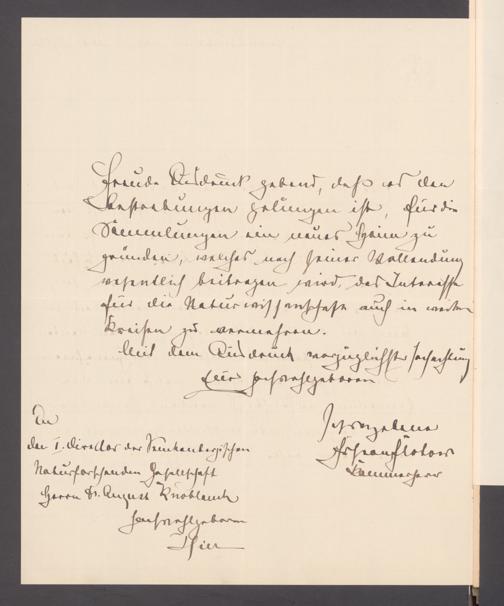 Freude Ausdruck gebend, daß es den
Bestrebungen gelungen ist, für die
Sammlungen ein neues Heim zu
gründen, welches nach seiner Vollendung
wesentlich beitragen wird, das Interesse
für die Naturwissenschaft auch in weiten
Kreisen zu vermehren.
Mit dem Ausdruck vorzüglichster Hochachtung
Euer Hochwohlgeboren
ergebener
Kammerherr
An
den I. Director der Senkenbergischen
Naturforschenden Gesellschaft
Herrn Dr. August Knoblauch
Hochwohlgeboren
Hier